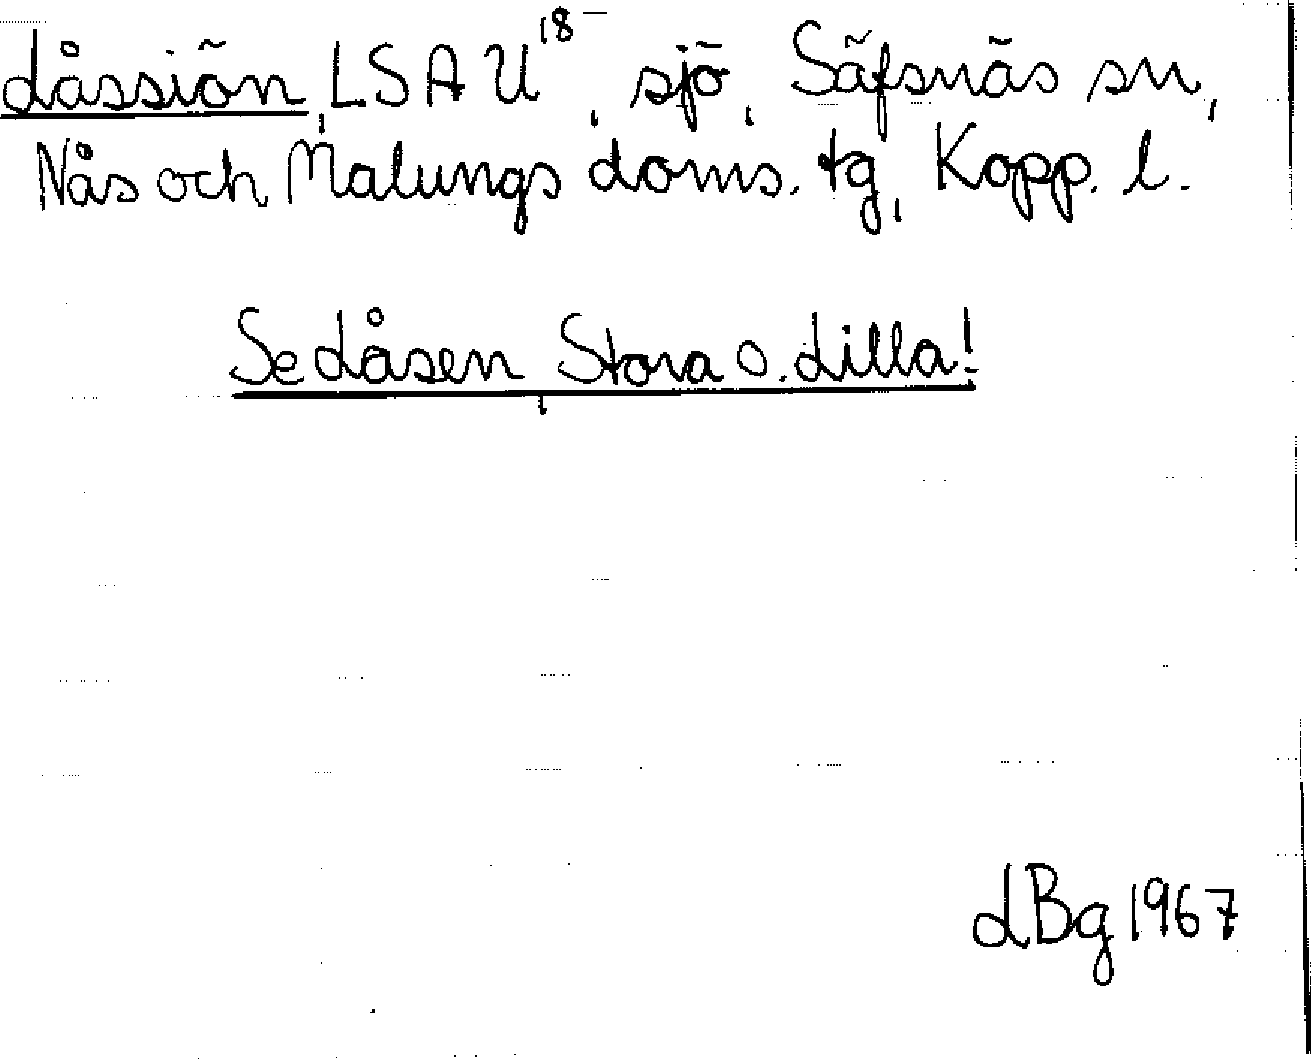 Låssiön, LSA U18, sjö, Säfsnäs sn,
Nås och Malungs doms. tg, Kopp. l.
Se Låsen, Stora o. Lilla!
LBg 1967